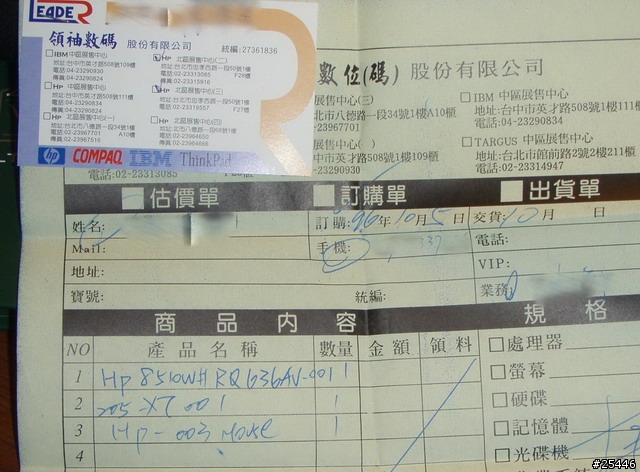 LEADER
領袖數碼 股份有限公司 統編:27361836
□IBM 中區展售中心
地址:台中市英才路508號109樓
電話:04-23290930
傳真:04-23290824
□HP 中區展售中心
地址:台中市英才路508號111樓
電話:04-23290834
傳真:04-23290824
□HP 北區展售中心(一)
電話:02-23967701 A10櫃
傳真:02-23967516
□HP 北區展售中心(二)
地址:台北市忠孝西路一段50號1樓
電話:02-23313085 F28櫃
傳真:02-23315916
HP 北區展售中心(三)
□HP 北區展售中心(四)
hp COMPAQ IBM ThinkPad
數位(碼) 股份有限公司
展售中心(三)
北市八德路一段34號1樓A10櫃
-23967701
展售中心( )
中市英才路508號1樓109櫃
-23290930
電話:02-23313085
□IBM 中區展售中心
地址:台中市英才路508號1樓111
電話:04-23290834
□TARGUS 中區展售中心
地址:台北市館前路2號2樓211櫃
電話:02-23314947
估價單 訂購單 出貨單
姓名: 訂購:96年10月5日 交貨:10月 日
Mail: 手機: 337 電話:
地址: VIP:
寶號: 統編: 業務:
商品內容 規格
NO 產品名稱 數量 金額 領料 □處理器
1 HP 8510W# RQ636AV-001 1 □螢幕
2 205-XT 001 1 □硬碟
3 HP-003 Mouse 1 □記憶體
4 □光碟機
#25446